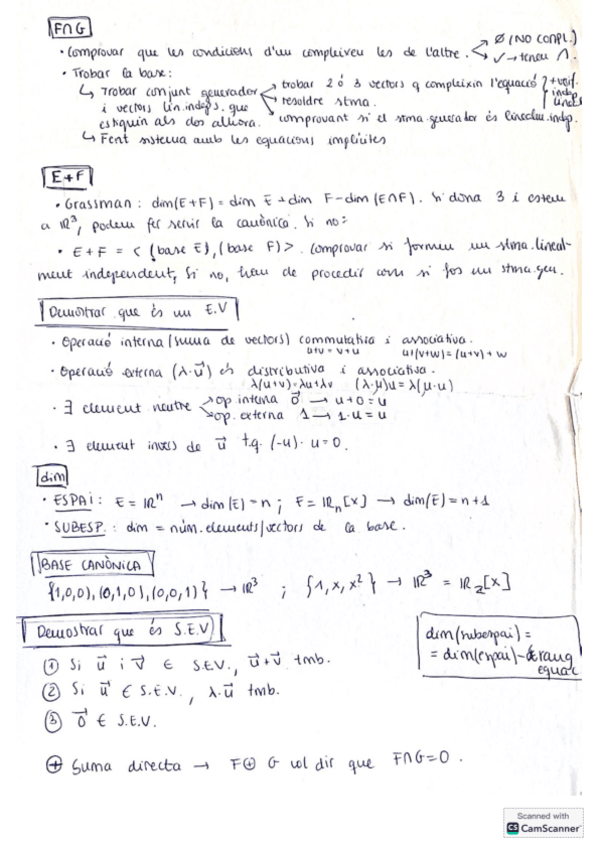 F∩G
· Comprovar que les condicions d'un compleixen les de l'altre. → Ø (NO COMPL.)
→ ✓ → teneu ∩.
· Trobar la base:
↳ Trobar conjunt generador → trobar 2 ó 3 vectors q compleixin l'equació } + verif.
i vectors lin. indeps. que → resoldre stma. indep
estiguin als dos alhora. → comprovant si el stma. generador és linealm. indep.
↳ Fent sistema amb les equacions implícites
E+F
· Grassman: dim(E+F) = dim E + dim F - dim(E∩F). Si dona 3 i estem
a ℝ³, podem fer servir la canònica. Si no:
· E+F = <(base E), (base F)>. Comprovar si formen un stma. lineal-
ment independent, si no, hem de procedir com si fos un stma. gen.
Demostrar que és un E.V
· Operació interna (suma de vectors) commutativa i associativa.
u+v = v+u u+(v+w) = (u+v)+w
· Operació externa (λ·u⃗) és distributiva i associativa.
λ(u+v) = λu+λv (λ·μ)u = λ(μ·u)
· ∃ element neutre → op. interna 0⃗ → u+0 = u
→ op. externa 1 → 1·u = u
· ∃ element invers de u⃗ t.q. (-u)·u = 0.
dim
· ESPAI: E = ℝⁿ → dim(E) = n ; E = ℝₙ[x] → dim(E) = n+1
· SUBESP.: dim = núm. elements/vectors de la base.
BASE CANÒNICA
{1,0,0), (0,1,0), (0,0,1)} → ℝ³ ; {1, x, x²} → ℝ³ = ℝ₂[x]
Demostrar que és S.E.V
① Si u⃗ i v⃗ ∈ S.E.V., u⃗+v⃗ tmb.
② Si u⃗ ∈ S.E.V., λ·u⃗ tmb.
③ 0⃗ ∈ S.E.V.
dim(subespai) =
= dim(espai) - rang
equac
⊕ Suma directa → F⊕G vol dir que F∩G = 0.
Scanned with
CS CamScanner